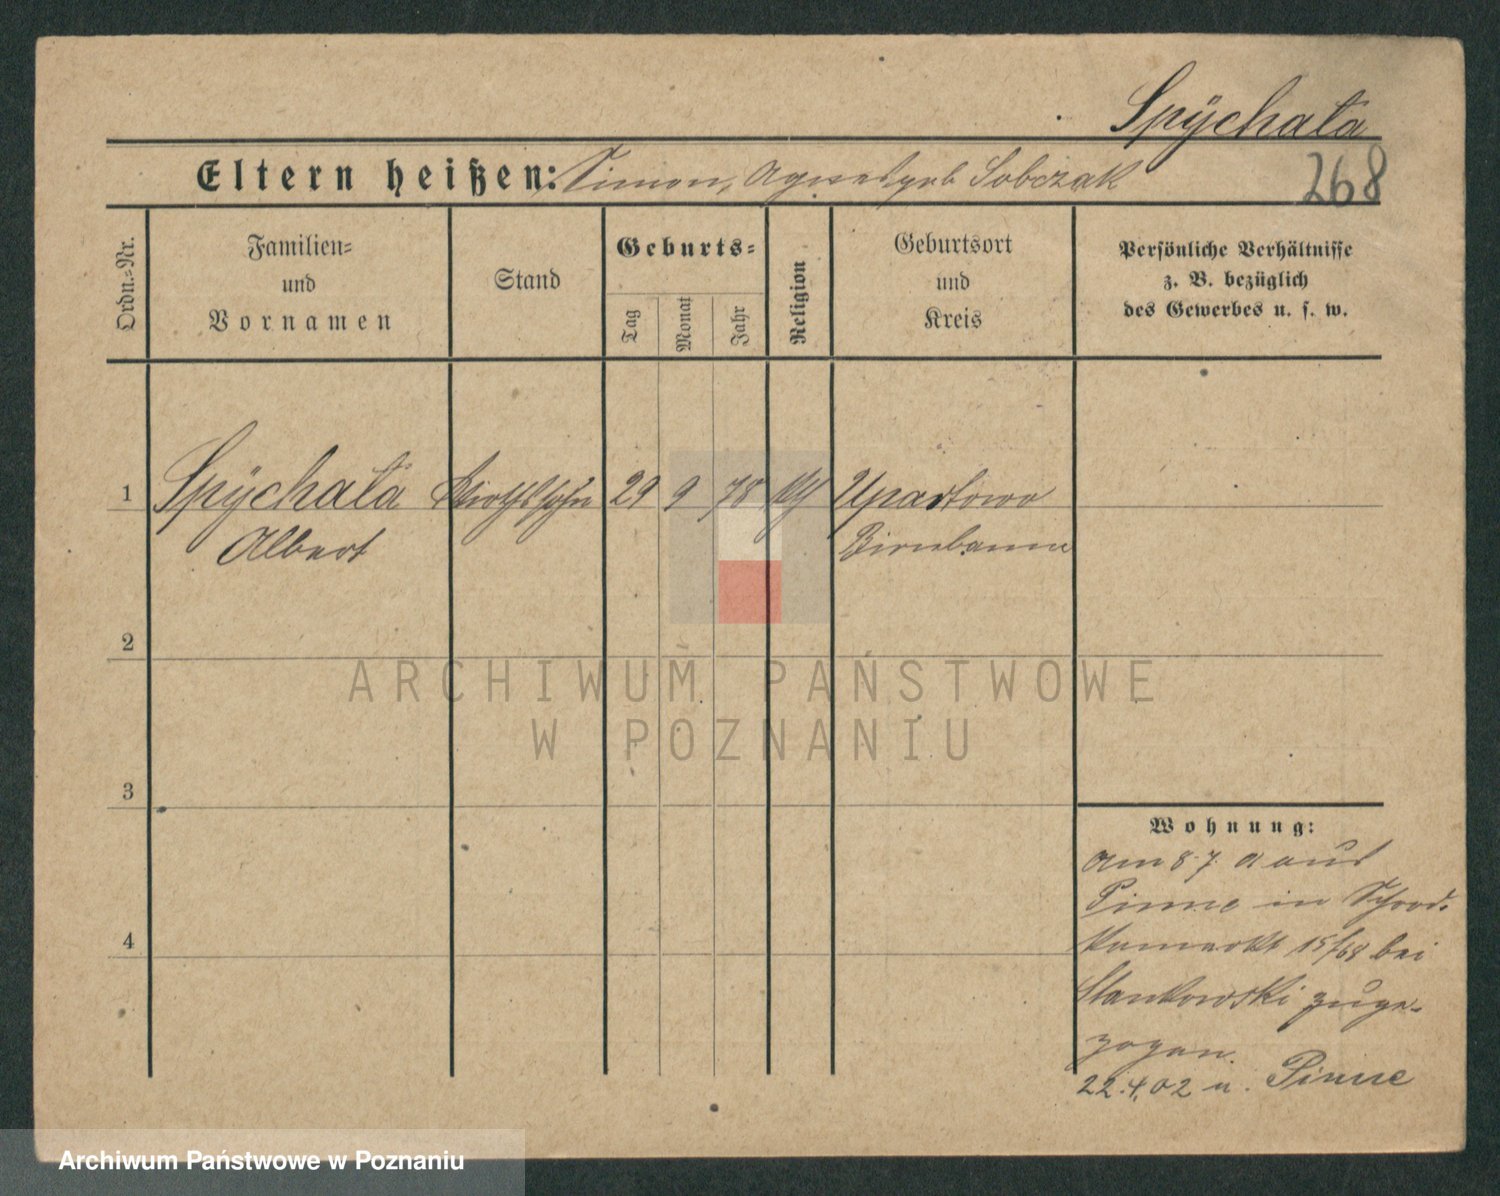 Spÿchała
Eltern heißen: Simon, Agnes geb Sobczak
268
Ordn.=Nr.
Familien=
und
Vornamen
Stand
Geburts=
Tag
Monat
Jahr
Religion
Geburtsort
und
Kreis
Persönliche Verhältnisse
z. B. bezüglich
des Gewerbes u. s. w.
1
Spÿchała
Albert
29 9 78
Upartowo
Birnbaum
2
3
4
Wohnung:
am 8.7. aus
Pinne in
15/68 bei
Stankowski zuge-
zogen.
22.4.02 n. Pinne
ARCHIWUM PAŃSTWOWE
W POZNANIU
Archiwum Państwowe w Poznaniu